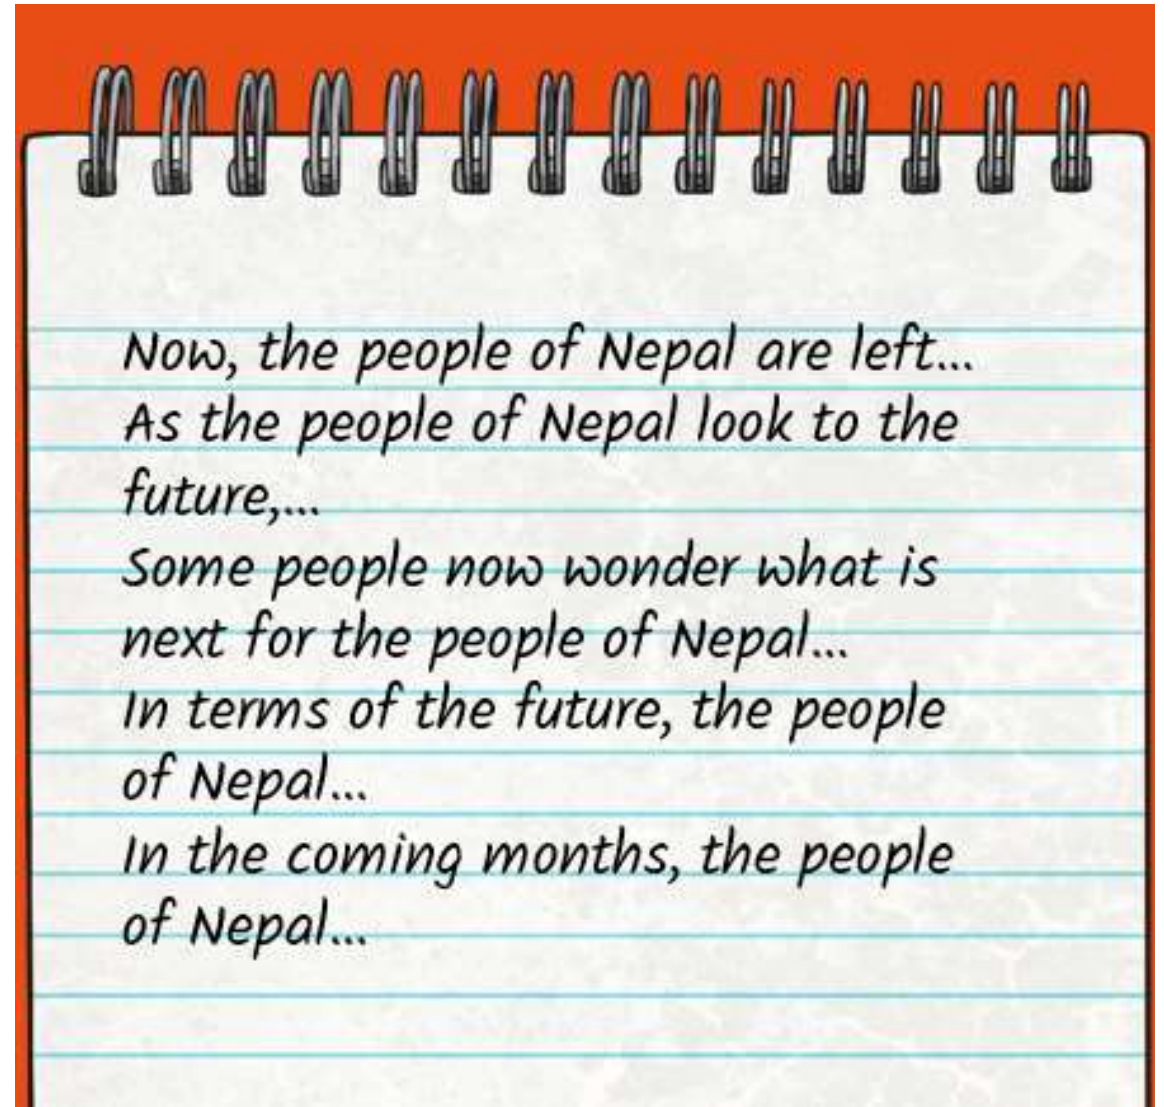 Now, the people of Nepal are left...
As the people of Nepal look to the
future,...
Some people now wonder what is
next for the people of Nepal...
In terms of the future, the people
of Nepal...
In the coming months, the people
of Nepal...